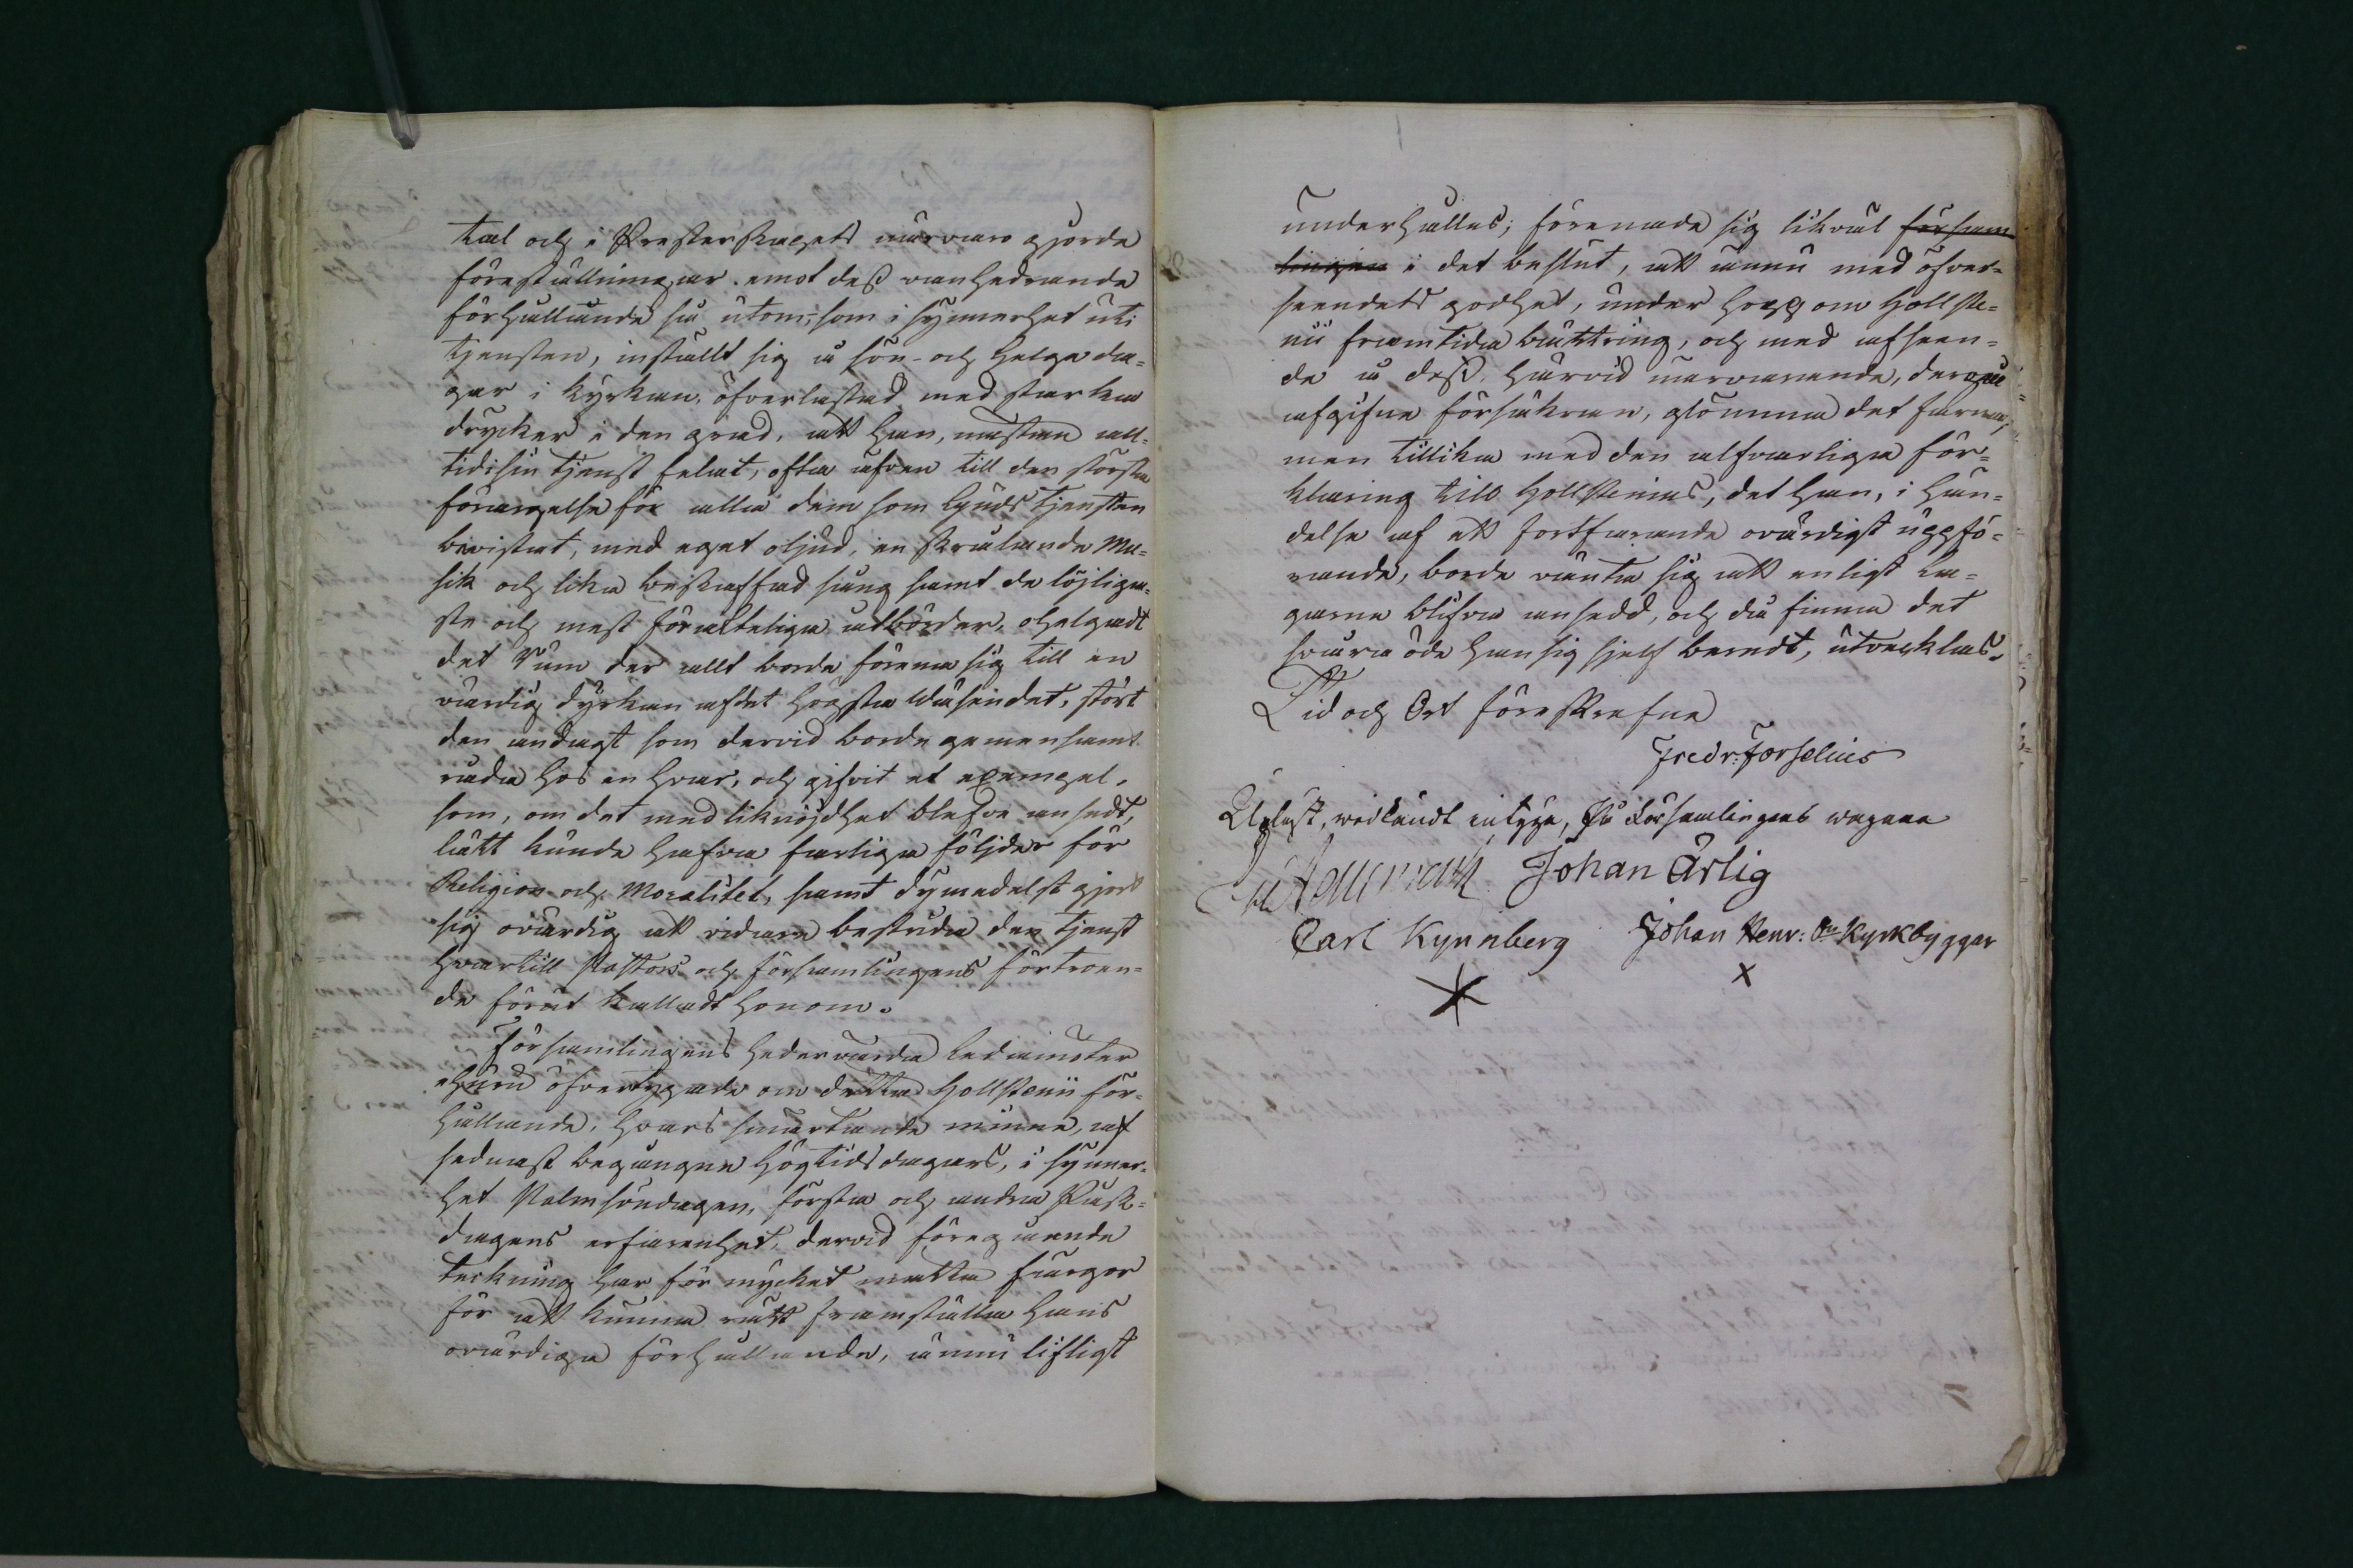 tal och i Presterskapets närvaro gjorde
föreställningar emot dess vanhedrande
förhållande så utom, som i synnerhet uti
tjensten, inställt sig å sön- och helgeda=
gar i kyrkan, öfverlastad med starka
drycker i den grad, att han, nästan all=
tid i sin tjenst felat, ofta äfven till den största
förargelse för alla dem som Gudstjensten
bevistat, med eget oljud, en skrålande Mu=
sik och lika beskaffad sång samt de löjliga=
ste och mest föraktliga åtbörder, ohelgadt
det Rum der allt borde förena sig till en
värdig dyrkan af det högsta Wäsendet, stört
den andagt som dervid borde gemensamt
råda hos en hvar, och gifvit et exempel,
som, om det med liknöjdhet blefve ansedt,
lätt kunde hafva farliga följder för
Religion och Moralitet, samt dymedelst gjort
sig ovärdig att vidare bestrida den tjenst
hvartill Pastors och församlingens förtroen=
de förut kalladt honom.
Församlingens hedervärda Ledamöter
ehuru öfvertygade om detta Hollstenii för=
hållande, hvars smärtande minne, af
sednast begångne högtidsdagars, i synner=
het Palmsöndagen, första och andra Påsk=
dagens erfarenhet, dervid föregående
teckning har för mycket matta färgor
för att kunna rätt framställa hans
ovärdiga förhållande, ännu lifligt
underhålles; förenade sig likväl försam
lingen i det beslut, att ännu med öfver=
seendets godhet, under hopp om Hollste=
nii framtida bättring, och med afseen=
de å dess, härvid närvarande, derpå
afgifne försäkran, glömma det farna;
men tillika med den alfvarliga för=
klaring till Hollstenius, det han, i hän=
delse af ett fortfarande ovärdigt uppfö=
rande, borde vänta sig att enligt La=
garne blifva ansedd, och då finna det
svåra öde han sig sjelf beredt, utvecklas.
Tid och Ort föreskrefne
Fredr: Forselius
Upläst, widkändt intyga, På Församlingens wägnar
Johan Ärlig
Carl Kynnberg Johan Henr: Kyrkbyggar